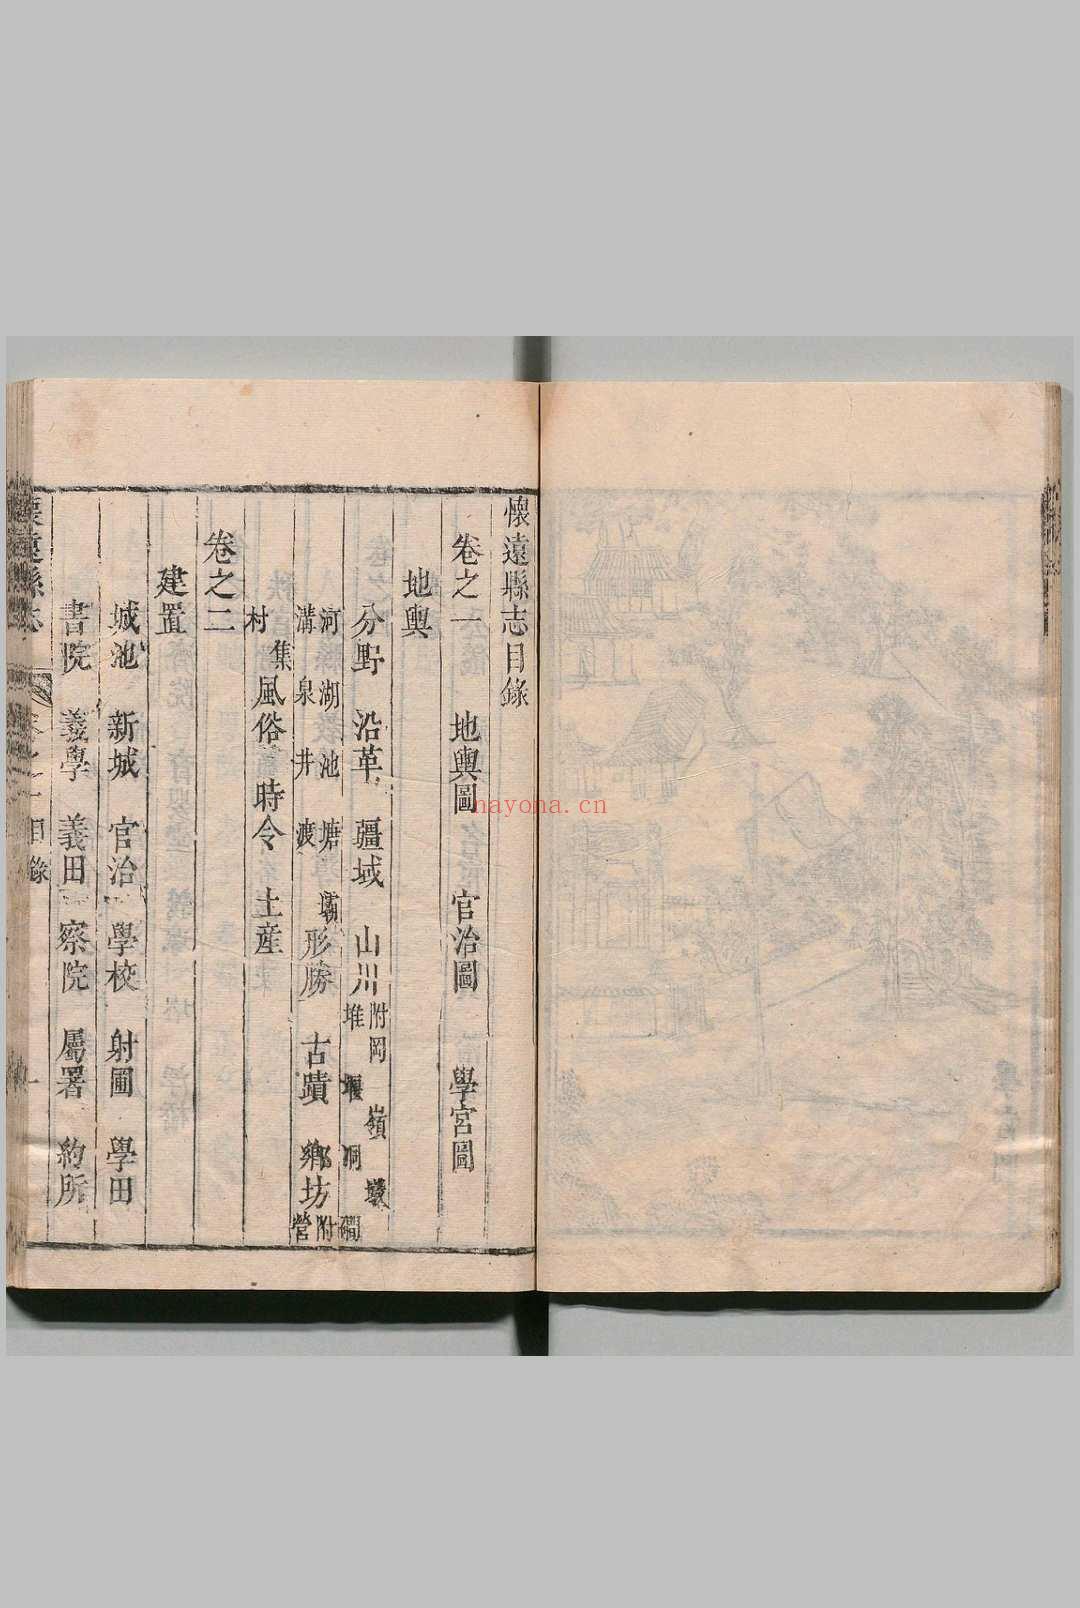 懷遠縣志目錄
卷之一 地輿圖 官治圖 學宮圖
地輿
分野 沿革 疆域 山川 附岡 嶺 墩 堆 堰 洞 澗
河 湖 池 塘 壩 溝 泉 井 渡 形勝 古蹟 鄉坊 附營
集 村 風俗 時令 土産
卷之二
建置
城池 新城 官治 學校 射圃 學田
書院 義學 義田 察院 屬署 約所
懷遠縣志 卷之一 目錄 一
nayona.cn